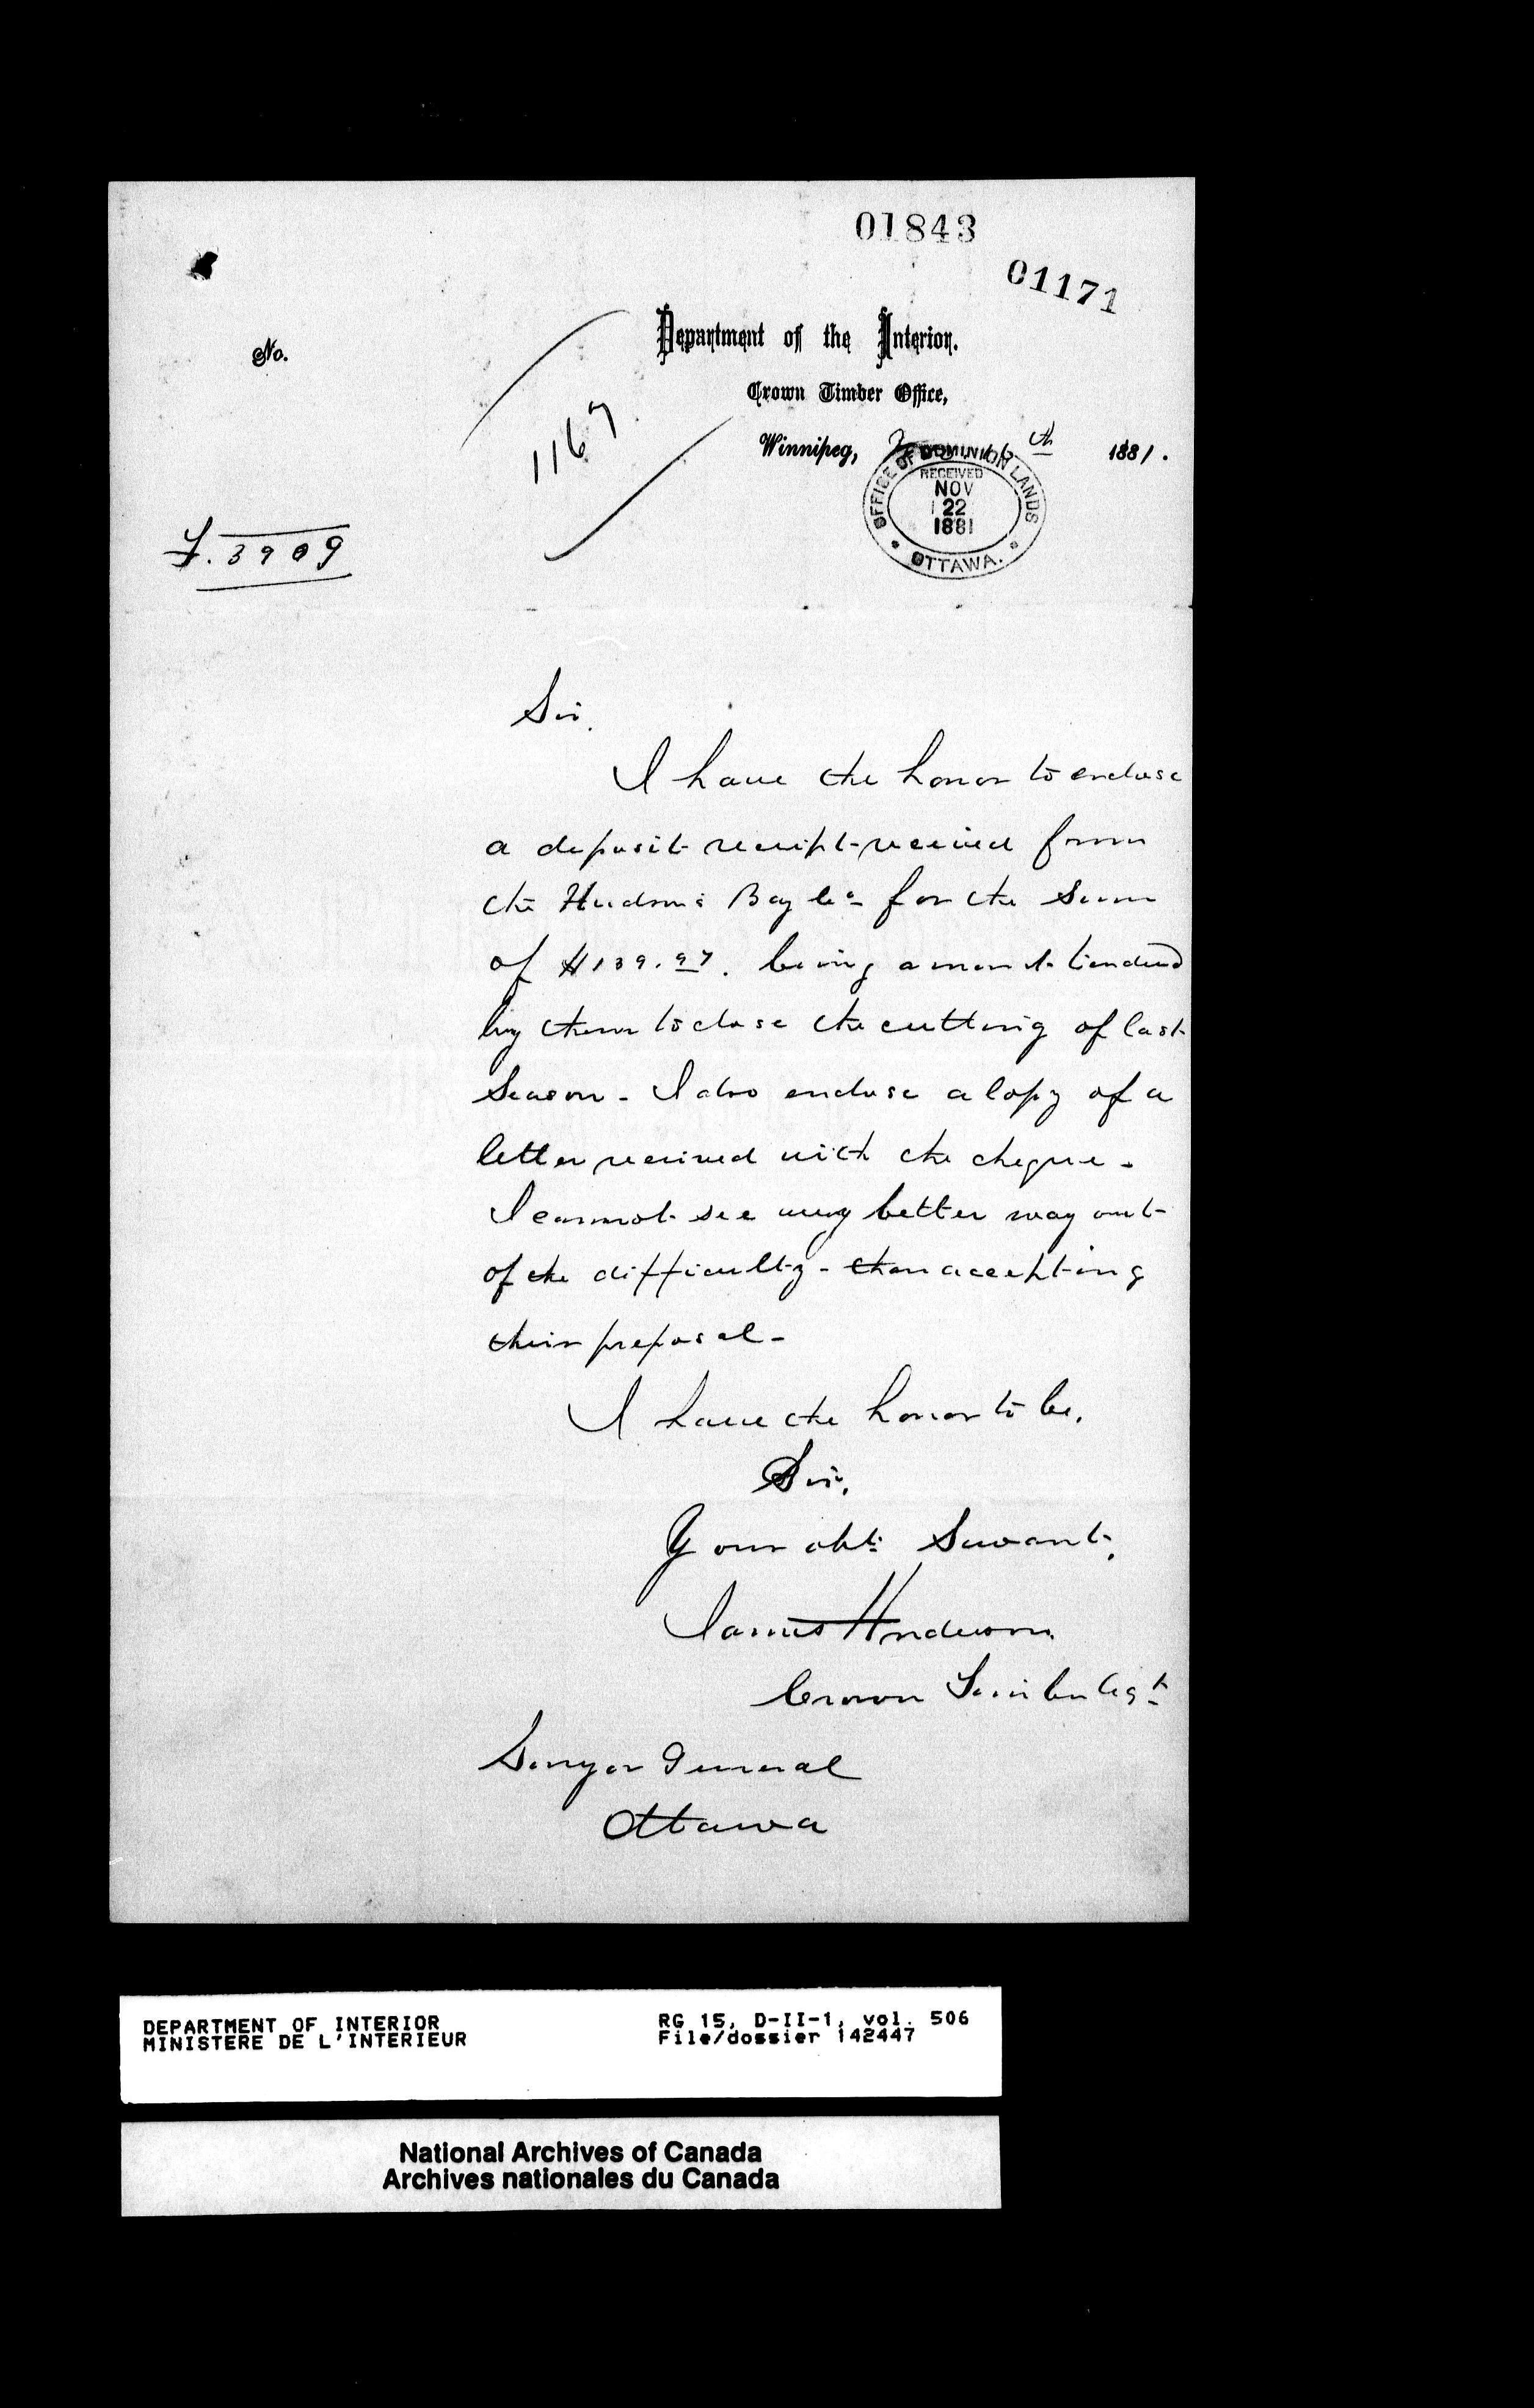 01843
01171
Department of the Interior.
No.
Crown Timber Office,
1167
Winnipeg, 16th 1881.
OFFICE OF DOMINION LANDS
RECEIVED
NOV
22
1881
OTTAWA.
T. 3909
Sir.
I have the honor to enclose
a deposit receipt received from
the Hudson's Bay Co for the sum
of $139.97. being amount tendered
by them to close the cutting of last
Season - I also enclose a Copy of a
letter received with the cheque -
I cannot see any better way out
of the difficulty - than accepting
their proposal -
I have the honor to be,
Sir,
Your obt. Servant,
James Anderson
Crown Timber Agt
Surveyor General
Ottawa
DEPARTMENT OF INTERIOR
MINISTERE DE L'INTERIEUR
RG 15, D-II-1, vol. 506
File/dossier 142447
National Archives of Canada
Archives nationales du Canada